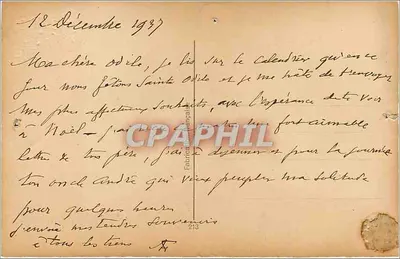 12 Décembre 1937
Ma chère Odile, je lis sur le calendrier qu'en ce
jour nous fêtons Sainte Odile et je me hâte de t'envoyer
mes plus affectueux souhaits, avec l'espérance de te voir
à Noël - j'ai une fort aimable
lettre de ton père, j'ai à déjeuner et pour la journée
ton oncle André qui veux peupler ma solitude
pour quelques heures
j'envoie mes tendres souvenirs
à tous les tiens
CPAPHIL
213